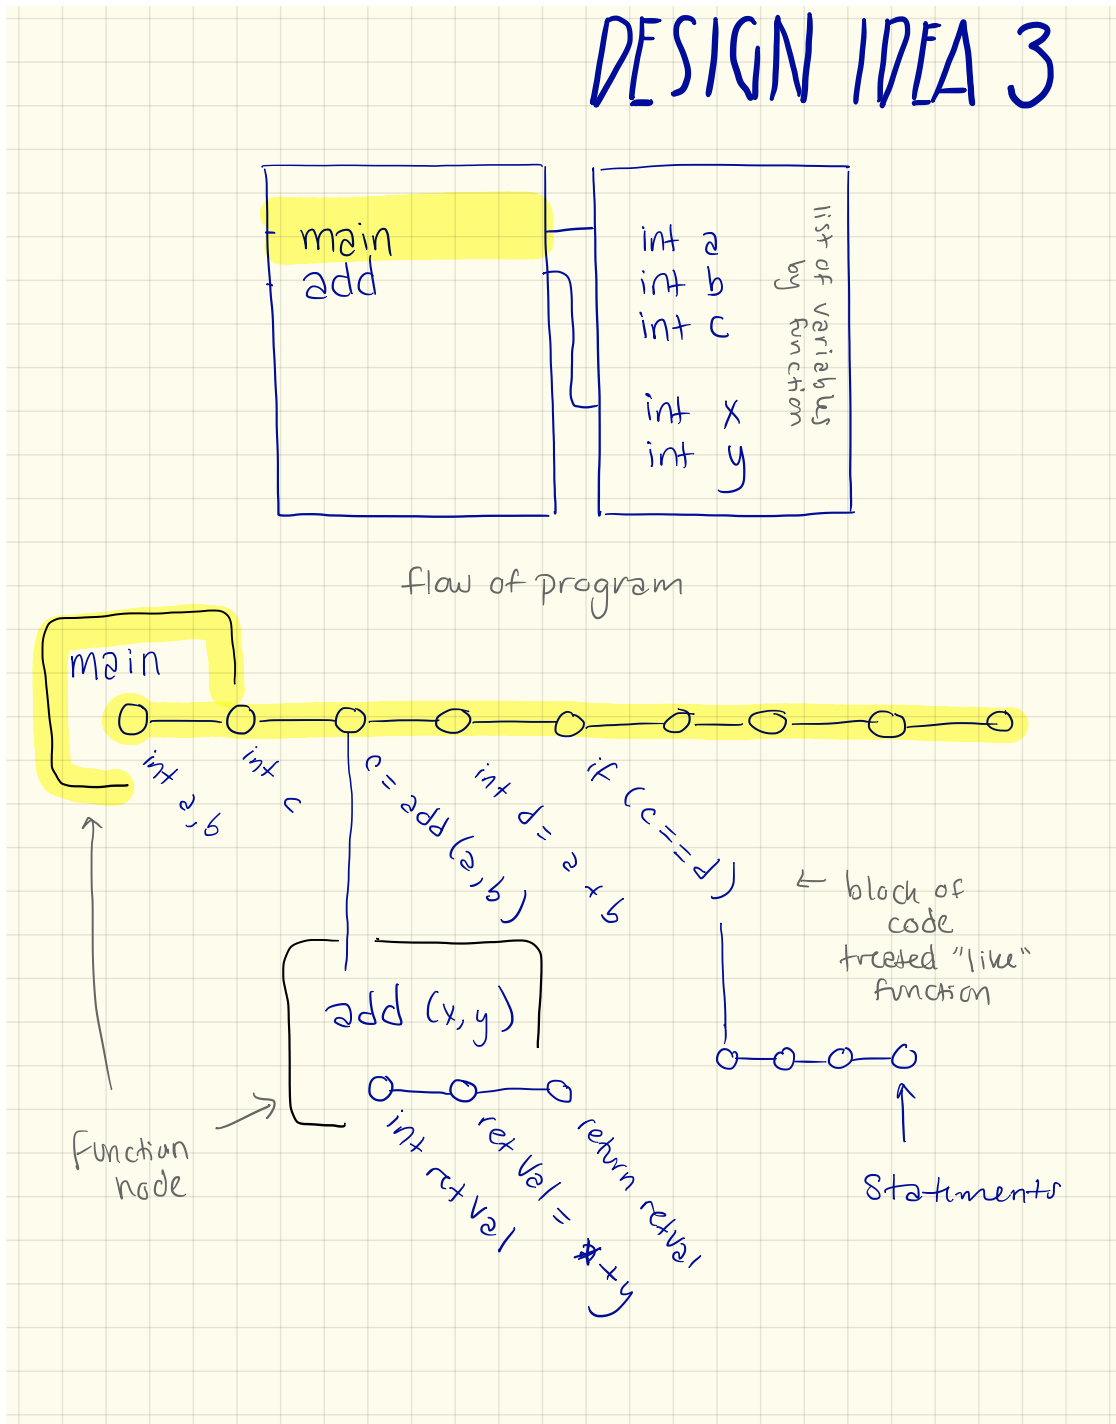 DESIGN IDEA 3
main
add
int a
int b
int c
int x
int y
list of variables
by function
flow of program
main
int a,b
int c
c = add (a,b)
int d = a x b
if (c == d)
← block of
code
treated "like"
function
add (x,y)
int retval
retval = x + y
return retval
Function
node
Statements